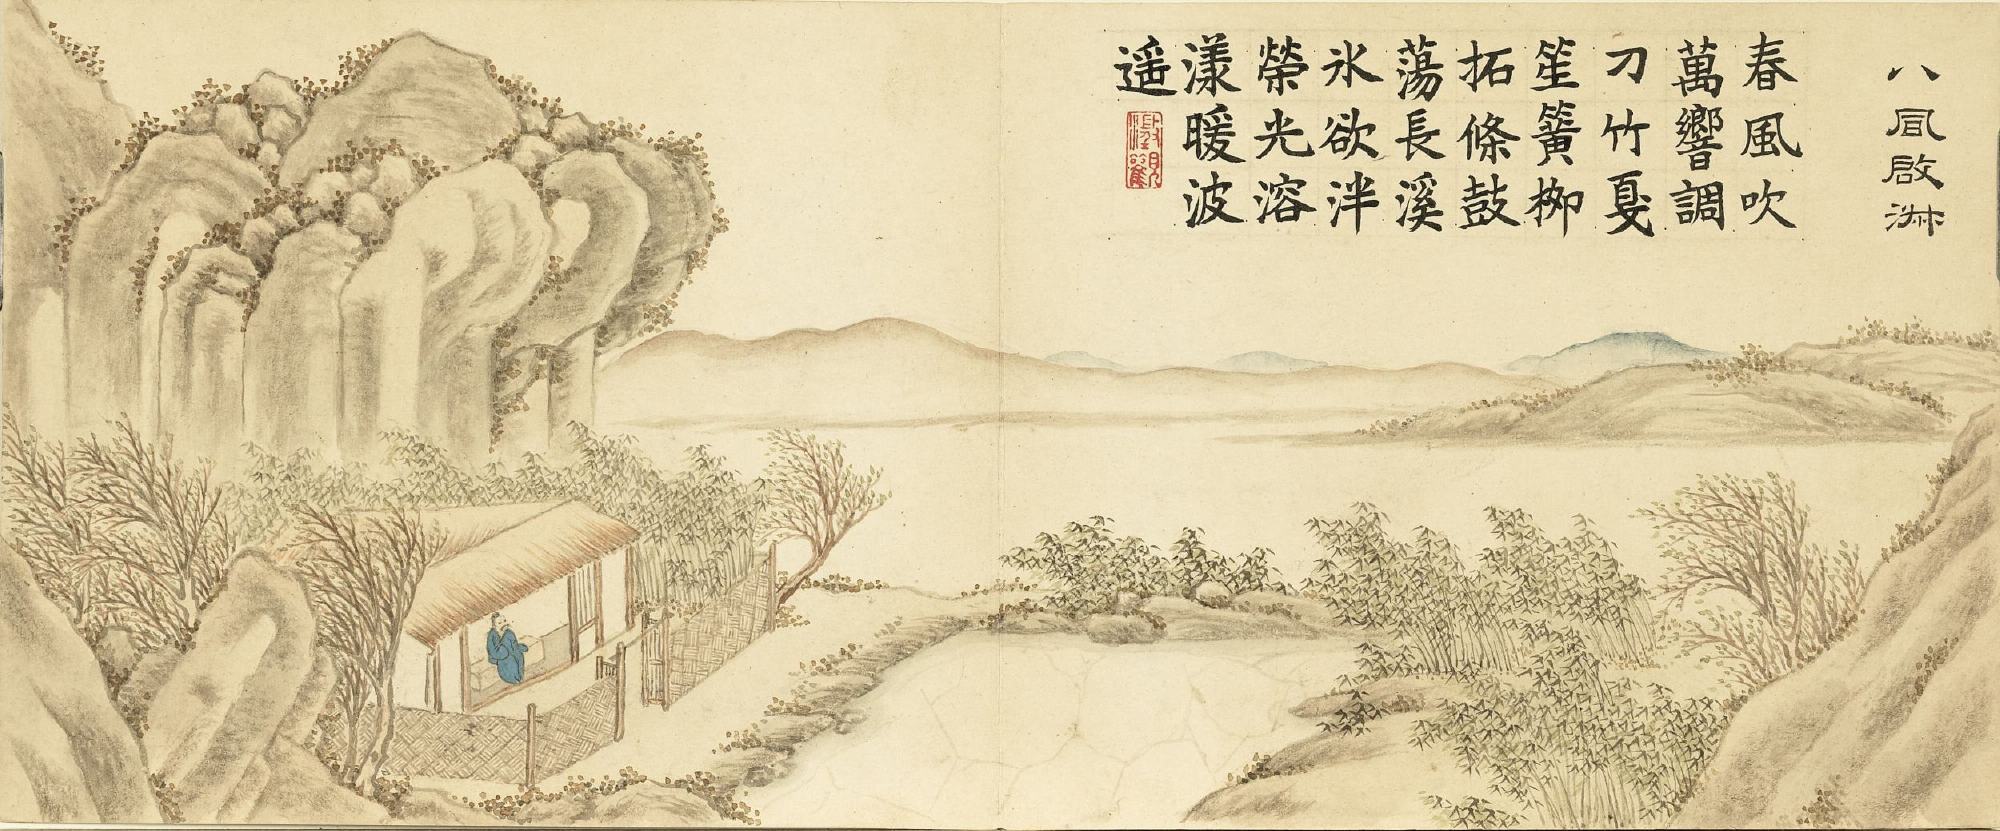 八風啟淑
春風吹
萬響調
刁竹戛
笙簧栁
拓條鼓
蕩長溪
氷欲泮
榮光溶
漾暖波
遥